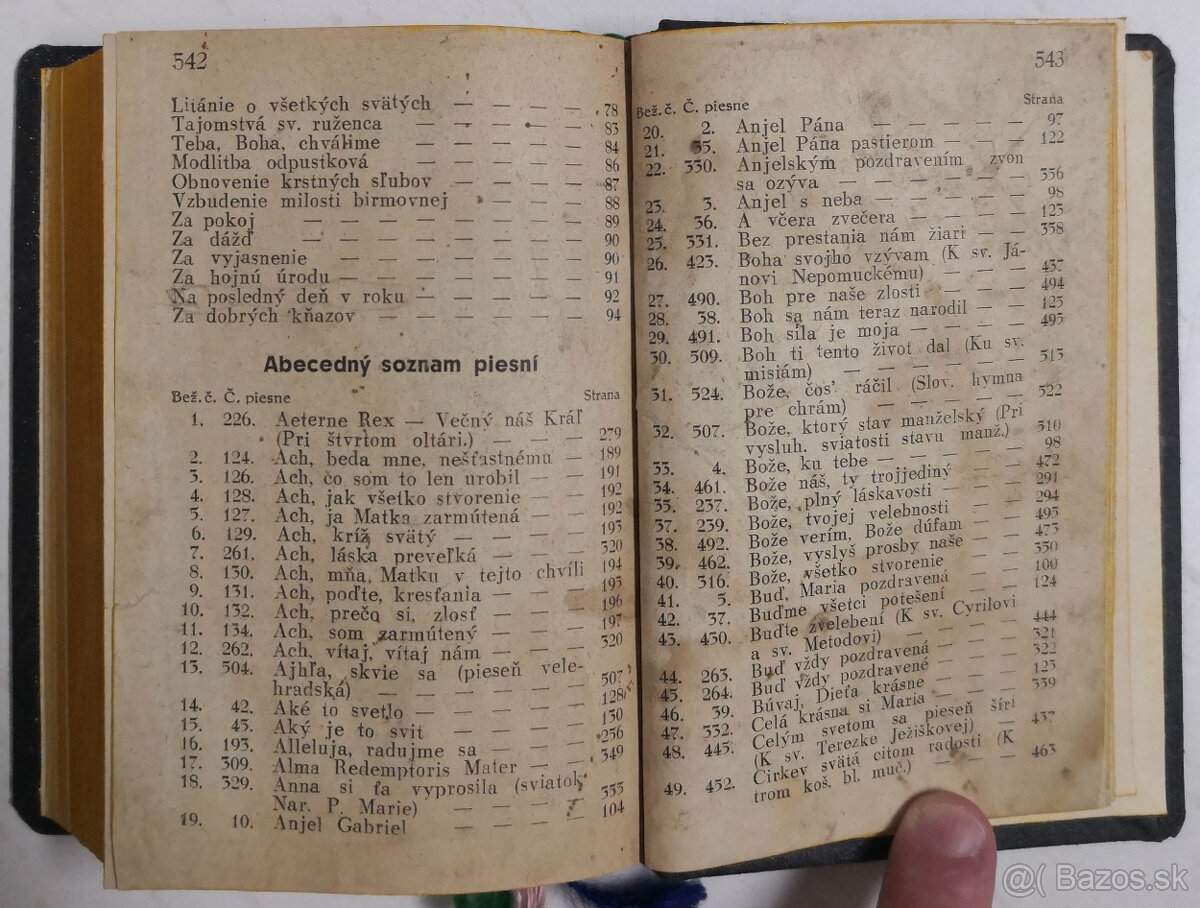 542
Litánie o všetkých svätých — — — — 78
Tajomstvá sv. ruženca — — — — — 83
Teba, Boha, chválime — — — — — 84
Modlitba odpustková — — — — — 86
Obnovenie krstných sľubov — — — — 87
Vzbudenie milosti birmovnej — — — 88
Za pokoj — — — — — — — 89
Za dážď — — — — — — — 90
Za vyjasnenie — — — — — — 90
Za hojnú úrodu — — — — — — 91
Na posledný deň v roku — — — — — 92
Za dobrých kňazov — — — — — — 94
Abecedný soznam piesní
Bež. č. Č. piesne Strana
1. 226. Aeterne Rex — Večný náš Kráľ
(Pri štvrtom oltári.) — — — 279
2. 124. Ach, beda mne, nešťastnému — 189
3. 126. Ach, čo som to len urobil — — 191
4. 128. Ach, jak všetko stvorenie — — 192
5. 127. Ach, ja Matka zarmútená — — 192
6. 129. Ach, kríž svätý — — — — 193
7. 261. Ach, láska preveľká — — — 320
8. 130. Ach, mňa, Matku v tejto chvíli 194
9. 131. Ach, poďte, kresťania — — — 195
10. 132. Ach, prečo si, zlosť — — — 196
11. 134. Ach, som zarmútený — — — 197
12. 262. Ach, vítaj, vítaj nám — — — 320
13. 504. Ajhľa, skvie sa (pieseň vele-
hradská) — — — — — 507
14. 42. Aké to svetlo — — — — 128
15. 45. Aký je to svit — — — — 130
16. 193. Alleluja, radujme sa — — — 256
17. 309. Alma Redemptoris Mater — — 349
18. 329. Anna si ťa vyprosila (sviatok
Nar. P. Marie) — — — — 355
19. 10. Anjel Gabriel — — — — 104
543
Bež. č. Č. piesne Strana
20. 2. Anjel Pána — — — — — 97
21. 35. Anjel Pána pastierom — — — 122
22. 330. Anjelským pozdravením zvon
sa ozýva — — — — — 356
23. 3. Anjel s neba — — — — — 98
24. 36. A včera zvečera — — — — 123
25. 331. Bez prestania nám žiari — — 358
26. 423. Boha svojho vzývam (K sv. Já-
novi Nepomuckému) — — — 437
27. 490. Boh pre naše zlosti — — — 494
28. 38. Boh sa nám teraz narodil — 125
29. 491. Boh sila je moja — — — — 495
30. 509. Boh ti tento život dal (Ku sv.
misiám) — — — — — 513
31. 524. Bože, čos' ráčil (Slov. hymna
pre chrám) — — — — 522
32. 507. Bože, ktorý stav manželský (Pri
vysluh. sviatosti stavu manž.) 510
33. 4. Bože, ku tebe — — — — 98
34. 461. Bože náš, ty trojjediný — — 472
35. 237. Bože, plný láskavosti — — — 291
37. 239. Bože, tvojej velebnosti — — 294
38. 492. Bože verím, Bože dúfam — — 495
39. 462. Bože, vyslyš prosby naše — — 473
40. 316. Bože, všetko stvorenie — — 350
41. 5. Buď, Maria pozdravená — — 100
42. 37. Buďme všetci potešení — — 124
43. 430. Buďte zvelebení (K sv. Cyrilovi
a sv. Metodovi) — — — — 444
44. 263. Buď vždy pozdravená — — — 321
45. 264. Buď vždy pozdravené — — — 322
46. 39. Búvaj, Dieťa krásne — — — 125
47. 332. Celá krásna si Maria — — — 359
48. 445. Celým svetom sa pieseň šíri
(K sv. Terezke Ježiškovej) — 457
49. 452. Cirkev svätá citom radosti (K
trom koš. bl. muč.) — — — 463
@( Bazos.sk